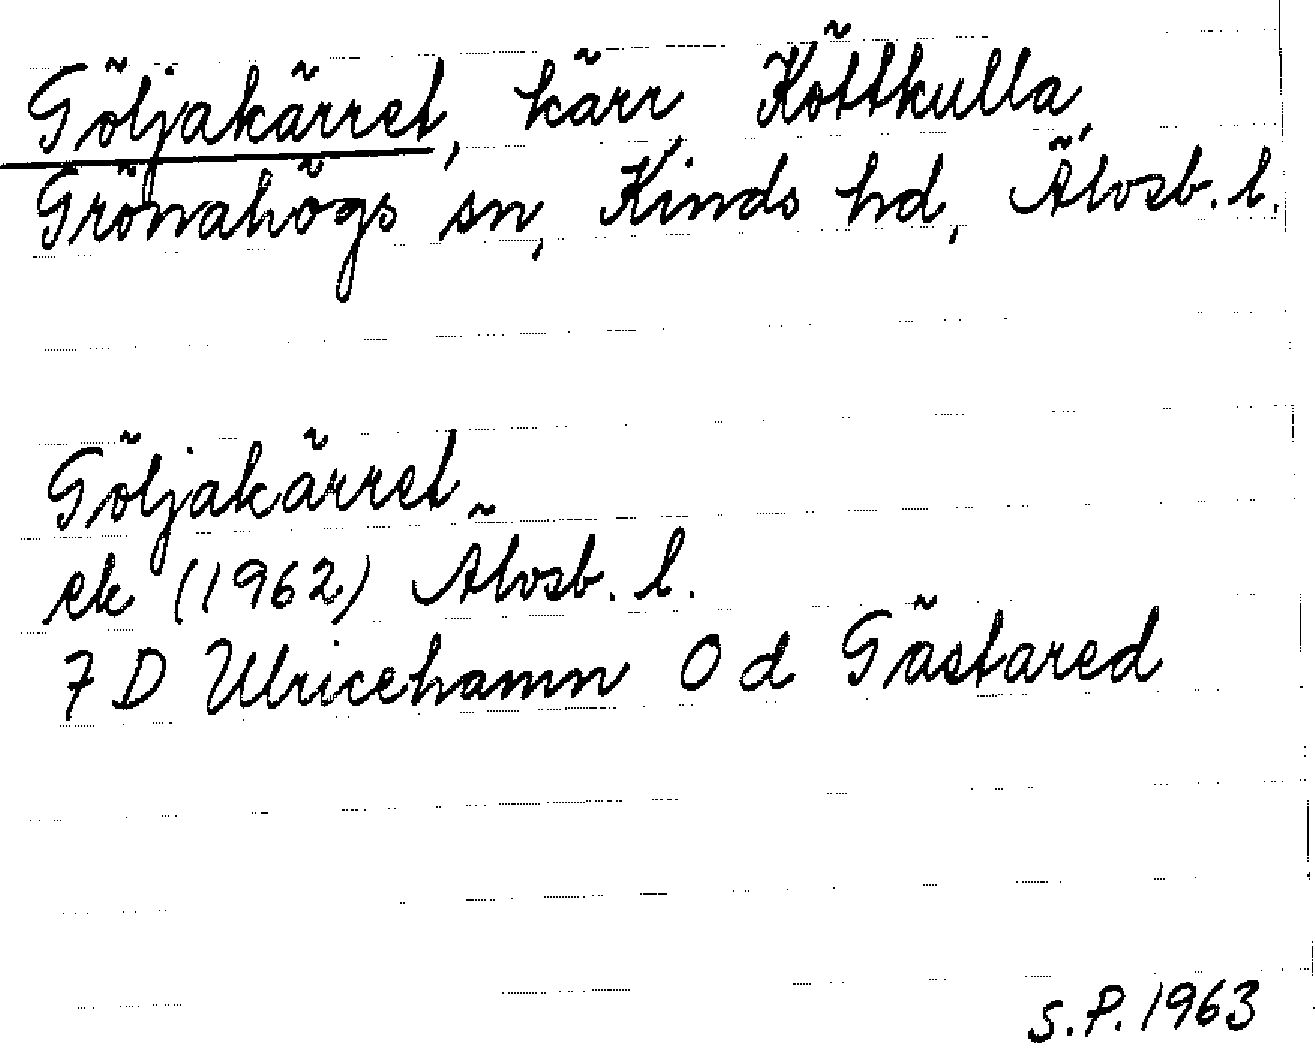 Göljakärret, kärr Köttkulla,
Grönahögs sn, Kinds hd, Älvsb. l.
Göljakärret
ek (1962) Älvsb. l.
7 D Ulricehamn 0 d Gästared
S.P. 1963